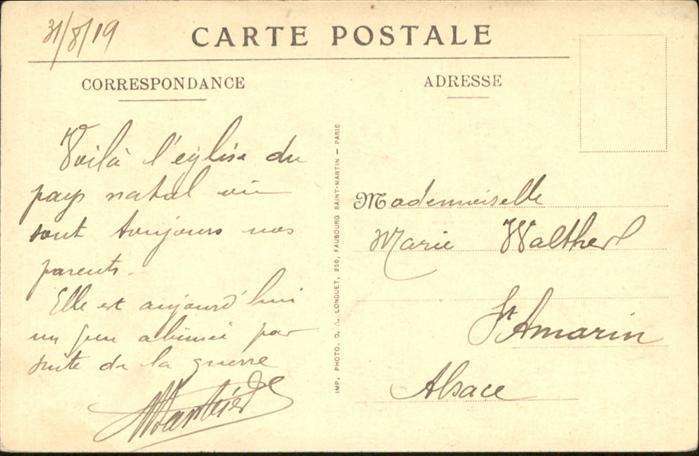 31/8/19
CARTE POSTALE
CORRESPONDANCE
ADRESSE
Voilà l'église du
pays natal où
sont toujours nos
parents.
Elle est aujourd'hui
un peu abimée par
suite de la guerre
IMP. PHOTO. D. A. LONGUET, 250, FAUBOURG SAINT-MARTIN — PARIS
Mademoiselle
Marie Walther
St Amarin
Alsace